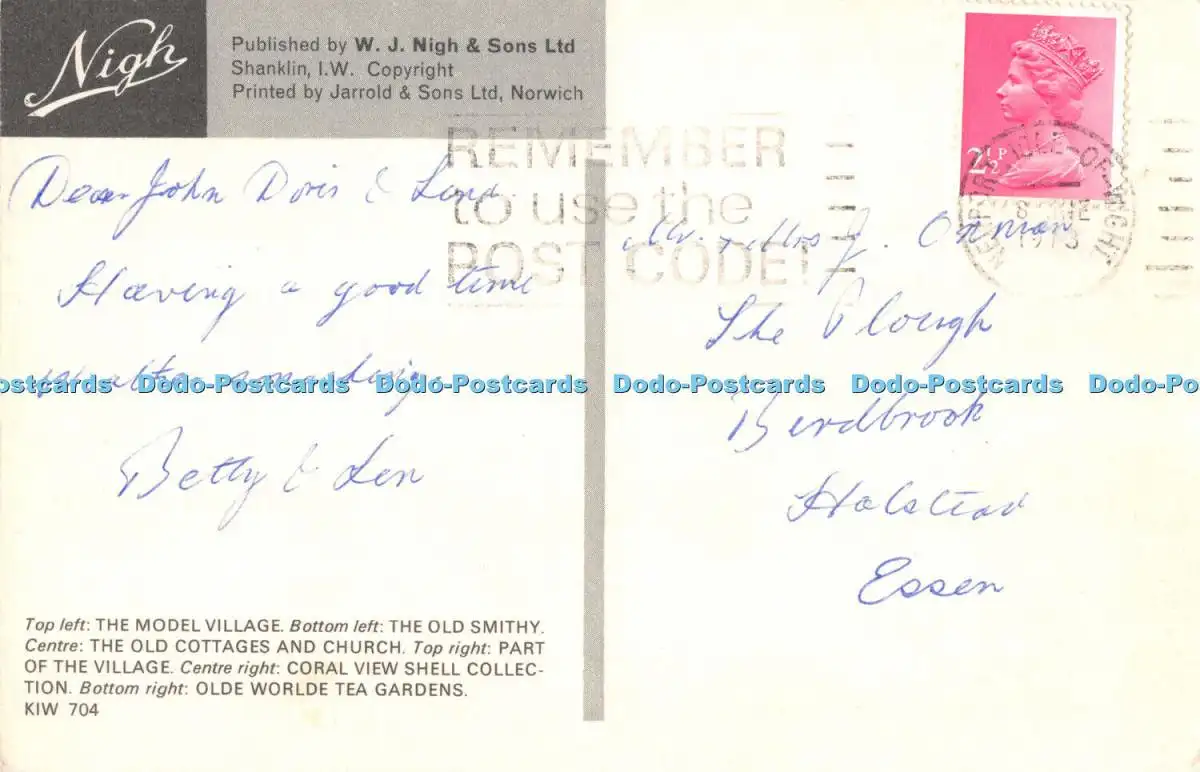 Nigh
Published by W. J. Nigh & Sons Ltd
Shanklin, I.W. Copyright
Printed by Jarrold & Sons Ltd, Norwich
REMEMBER
to use the
POST CODE!
2½P
NEWPORT ISLE-OF-WIGHT
Dear John Doris &
Having a good time
Betty & Len
Mr. & Mrs J.
The Plough
Birdbrook
Halstead
Essex
Dodo-Postcards Dodo-Postcards Dodo-Postcards Dodo-Postcards Dodo-Postcards
Top left: THE MODEL VILLAGE. Bottom left: THE OLD SMITHY.
Centre: THE OLD COTTAGES AND CHURCH. Top right: PART
OF THE VILLAGE. Centre right: CORAL VIEW SHELL COLLEC-
TION. Bottom right: OLDE WORLDE TEA GARDENS.
KIW 704